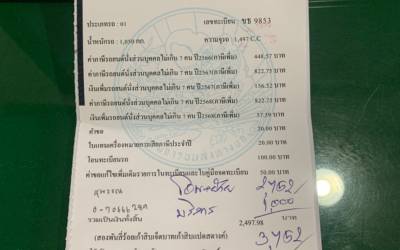 ประเภทรถ : 01 เลขทะเบียน : ขธ 9853
น้ำหนักรถ : 1,050 กก. ความจุรถ : 1,497 C.C
ค่าภาษีรถยนต์นั่งส่วนบุคคลไม่เกิน 7 คน ปี2566(ภาษีเพิ่ม) 448.57 บาท
ค่าภาษีรถยนต์นั่งส่วนบุคคลไม่เกิน 7 คน ปี2567(ภาษีเพิ่ม) 822.75 บาท
เงินเพิ่มรถยนต์นั่งส่วนบุคคลไม่เกิน 7 คน ปี2567(ภาษีเพิ่ม) 156.52 บาท
ค่าภาษีรถยนต์นั่งส่วนบุคคลไม่เกิน 7 คน ปี2568(ภาษีเพิ่ม) 822.75 บาท
เงินเพิ่มรถยนต์นั่งส่วนบุคคลไม่เกิน 7 คน ปี2568(ภาษีเพิ่ม) 57.59 บาท
ค่าขอ 20.00 บาท
ใบแทนเครื่องหมายการเสียภาษีประจำปี 20.00 บาท
โอนทะเบียนรถ 100.00 บาท
ค่าขอแก้ไขเพิ่มเติมรายการในทะเบียนและใบคู่มือจดทะเบียน 50.00 บาท
2,752
บริการ 1,000
รวมเป็นเงินทั้งสิ้น 2,497.98 บาท
(สองพันสี่ร้อยเก้าสิบเจ็ดบาทเก้าสิบแปดสตางค์) 3,752